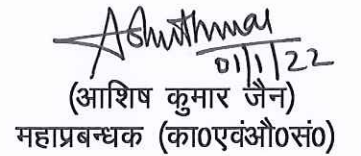 01/1/22
(आशिष कुमार जैन)
महाप्रबन्धक (का0एवंऔ0सं0)